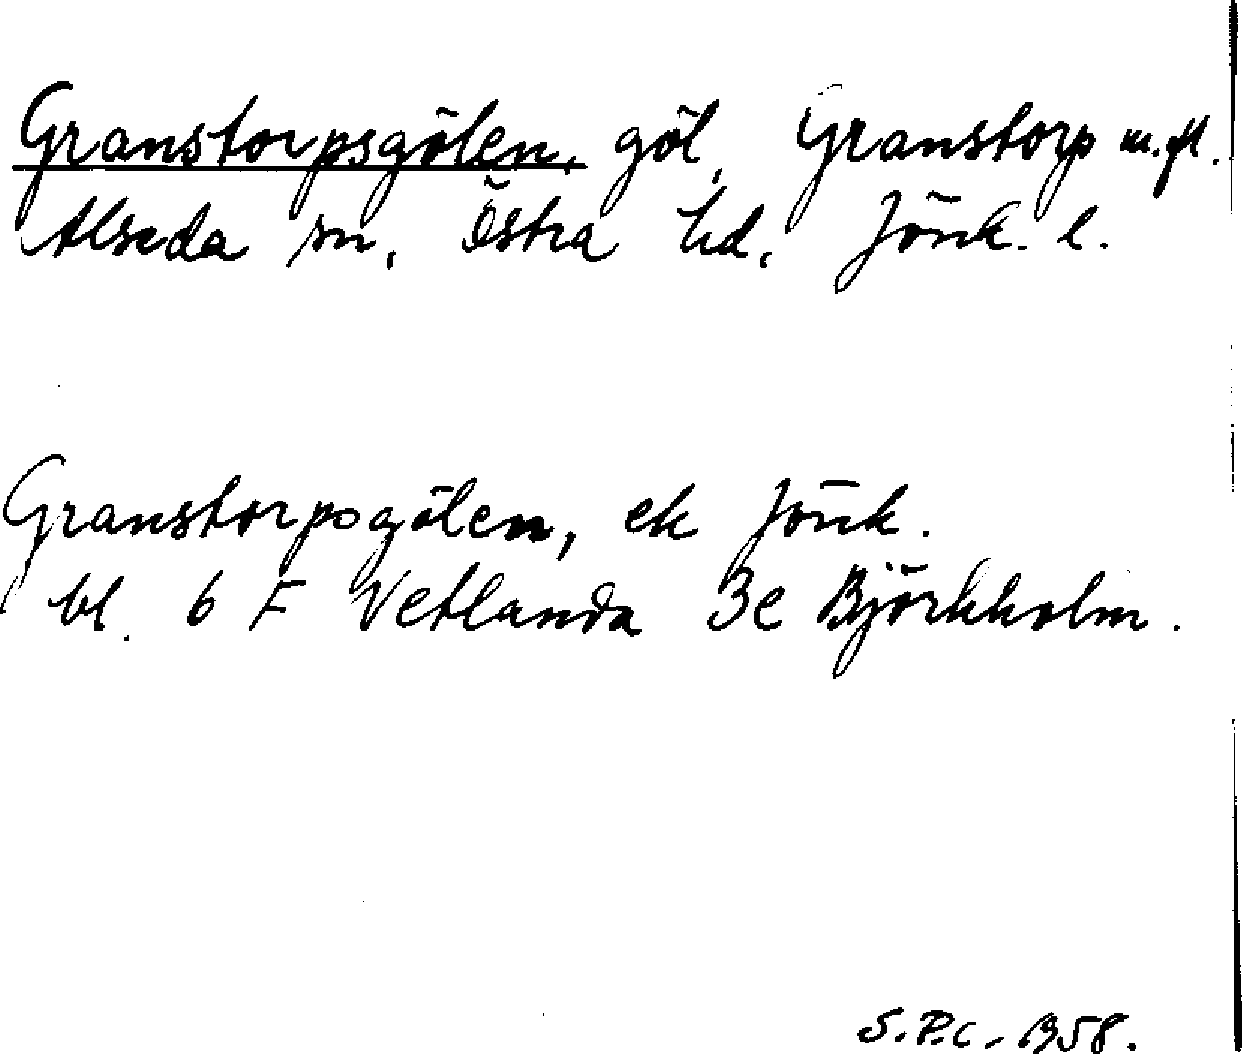 Granstorpsgölen, göl, Granstorp m.fl.
Alseda sn, Östra hd, Jönk. l.
Granstorpsgölen, ek Jönk.
bl. 6 F Vetlanda 3e Björkholm.
S.P.C. 1958.